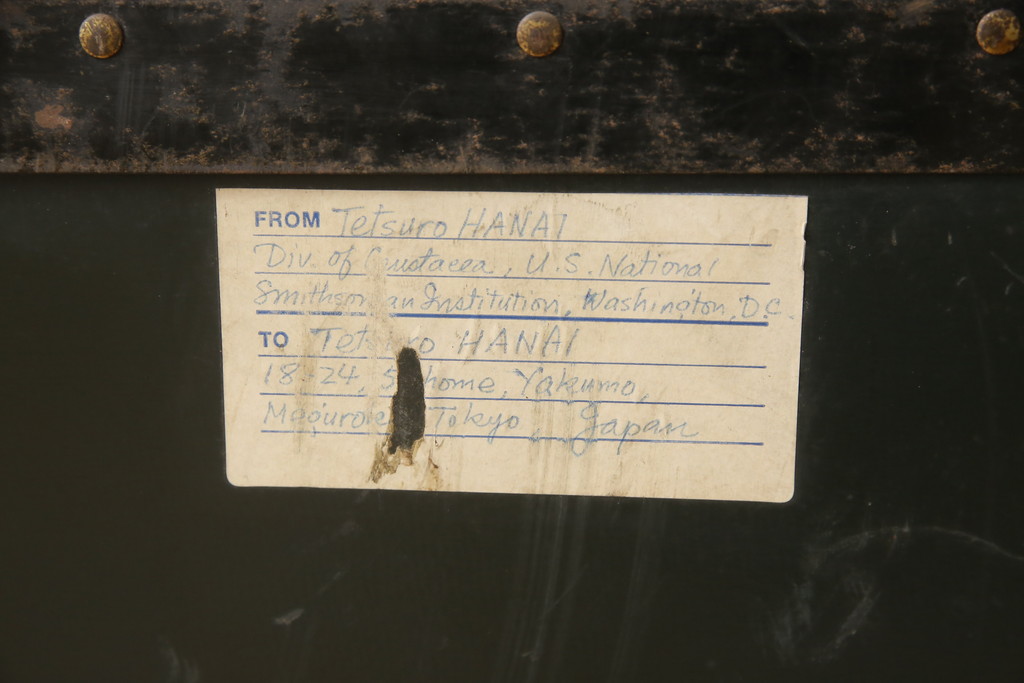 FROM Tetsuro HANAI
Div. of Crustacea, U.S. National
Smithsonian Institution, Washington, D.C.
TO Tetsuro HANAI
18-24, 5 chome, Yakumo,
Tokyo, Japan